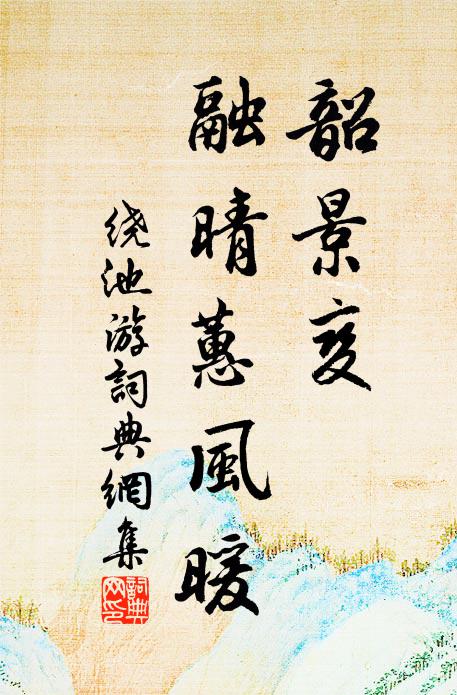 韶景变
融晴蕙風暖
绕池游詞典網集
詞典
网印